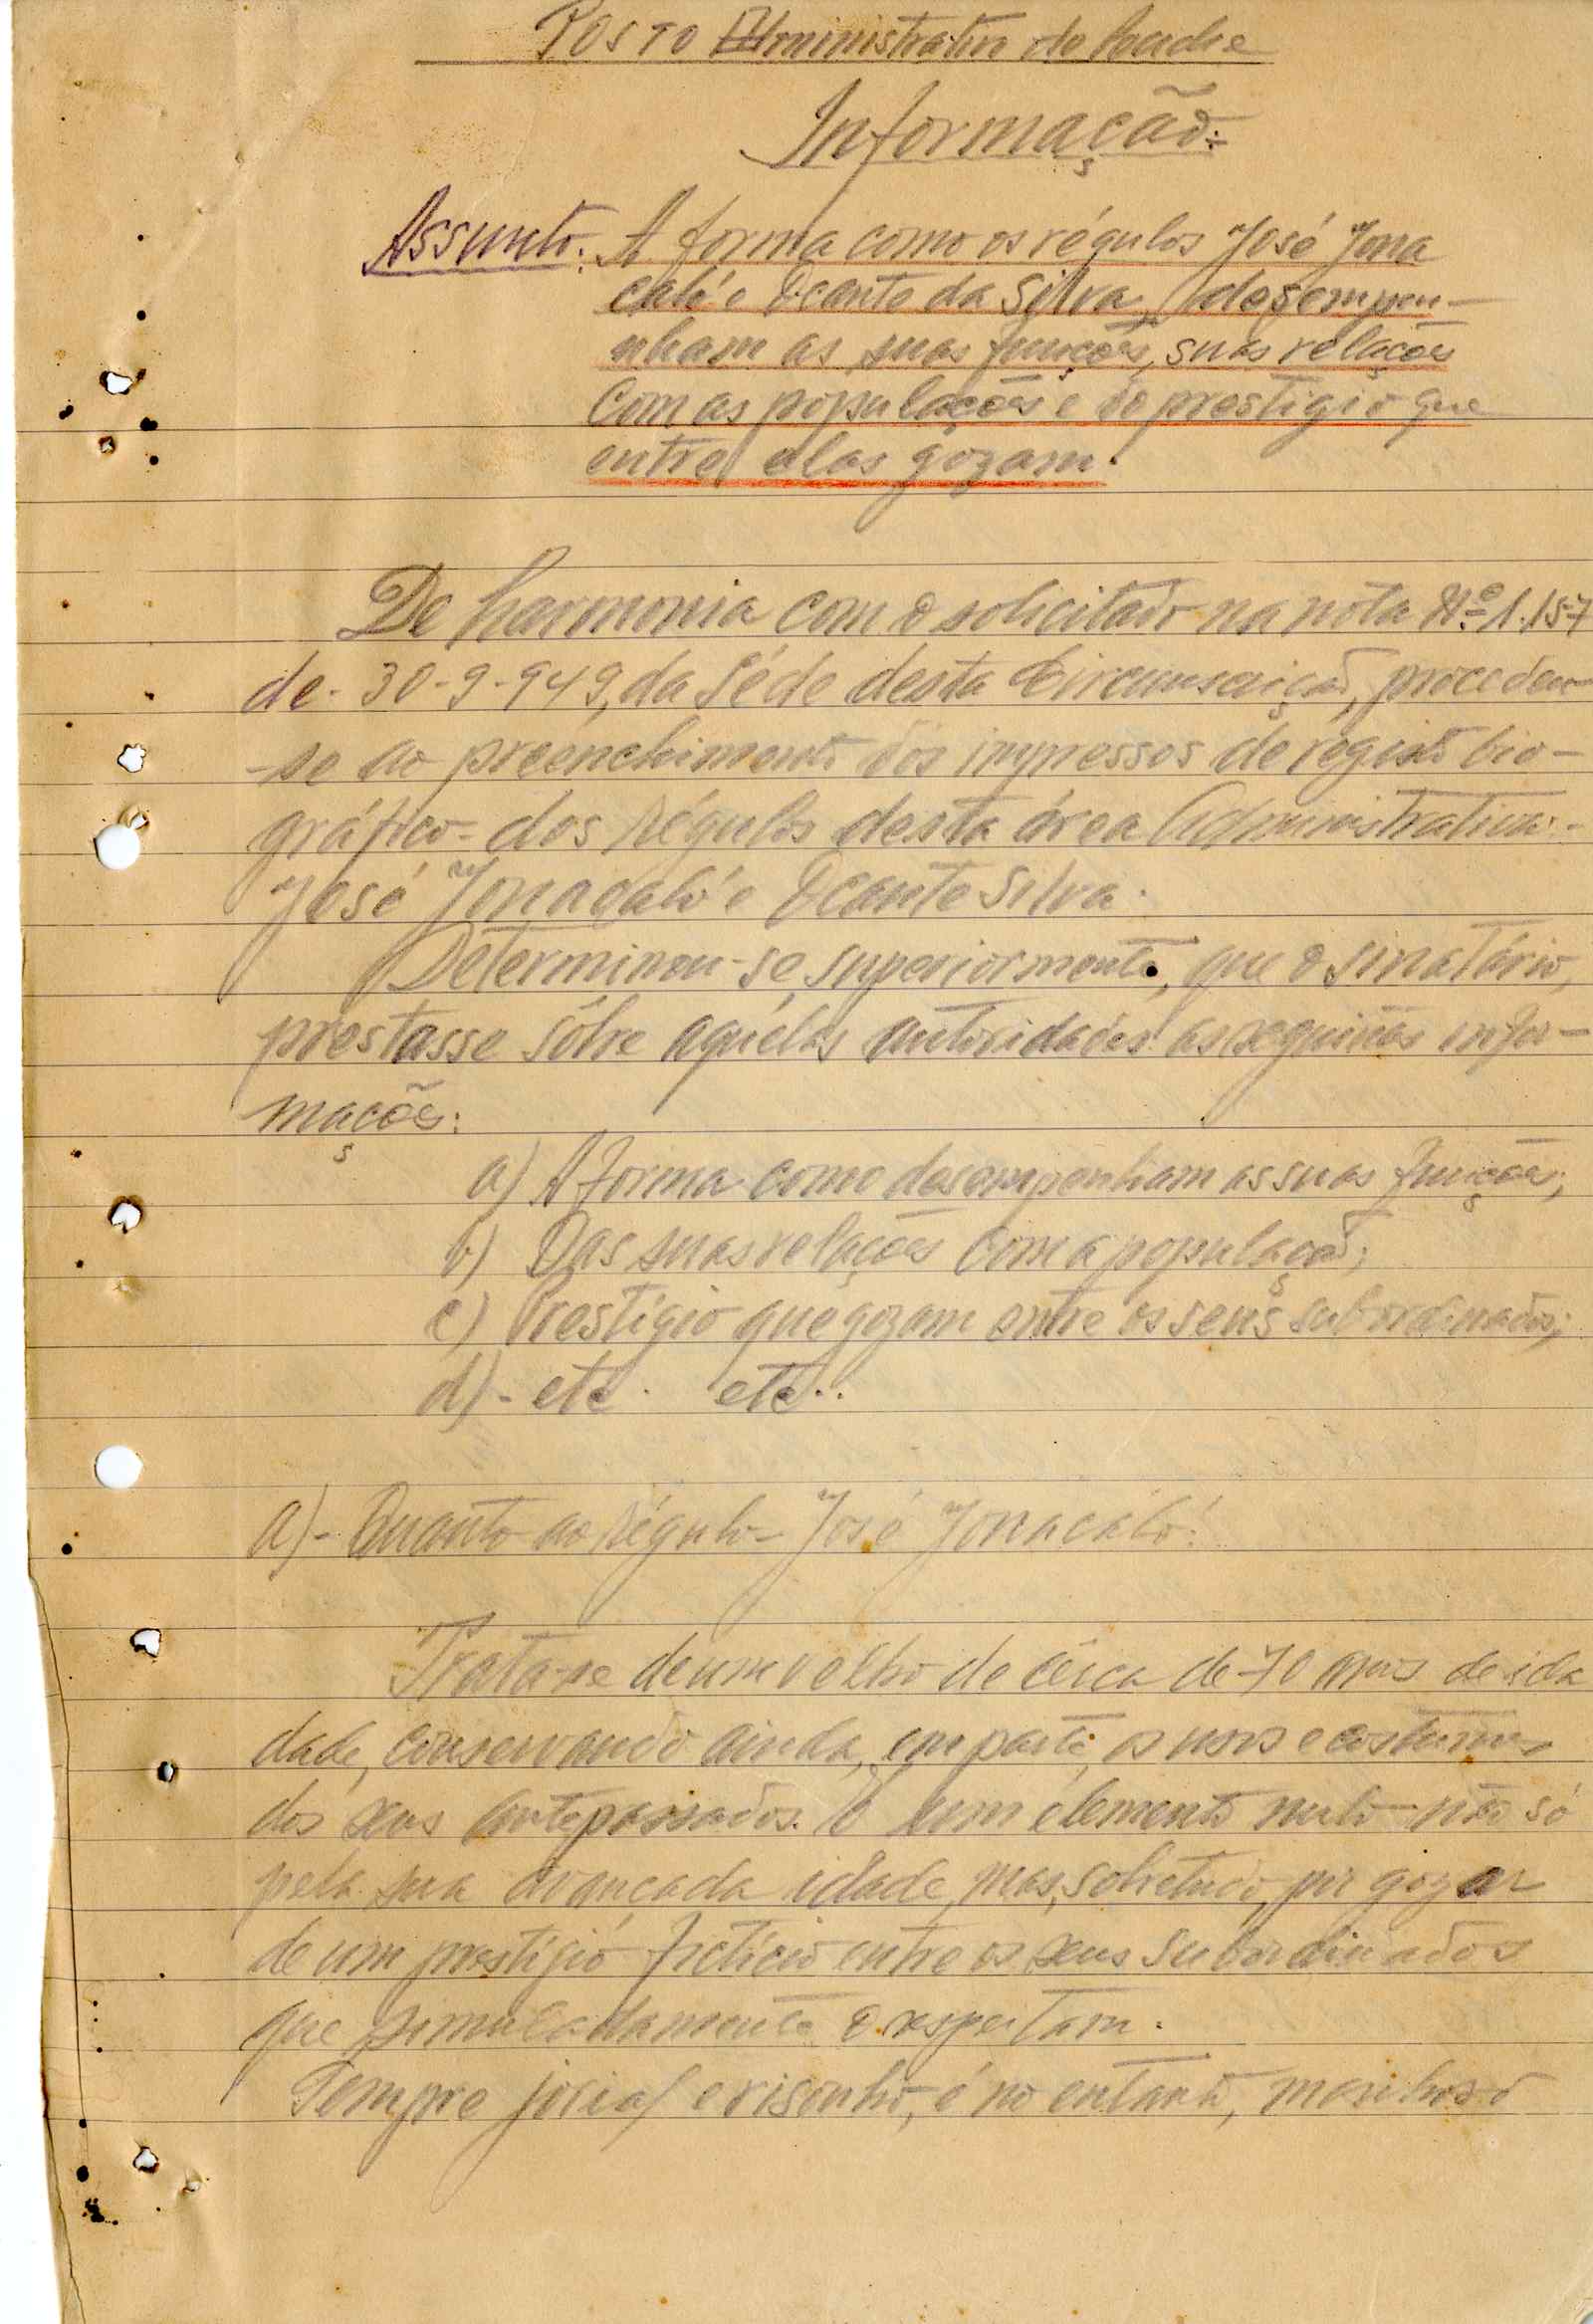 Posto Administrativo de
Informação:
Assunto: A forma como os régulos José Jona
caló e Ocante da Silva, desempe-
nham as suas funções, suas relações
com as populações e do prestígio que
entre elas gozam.
De harmonia com o solicitado na nota Nº 1.157
de 30-9-949, da Séde desta Circunscrição, procedeu-
-se ao preenchimento dos impressos de registo bio-
gráfico dos régulos desta área Administrativa:-
José Jonacaló e Ocante Silva.
Determinou-se, superiormente, que o sinatário,
prestasse sôbre aquelas autoridades as seguintes infor-
mações:
a) A forma como desempenham as suas funções;
b) Das suas relações com a população;
c) Prestígio que gozam entre os seus subordinados;
d)- etc. etc..
a)- Quanto ao régulo- José Jonacaló:
Trata-se de um velho de cêrca de 70 anos de ida
dade, conservando ainda, em parte, os usos e costumes
dos seus antepassados. É um elemento nulo não só
pela sua avançada idade, mas, sobretudo, por gozar
de um prestígio fictício entre os seus subordinados
que simuladamente o respeitam.
Sempre jovial e risonho, é no entanto, manhoso